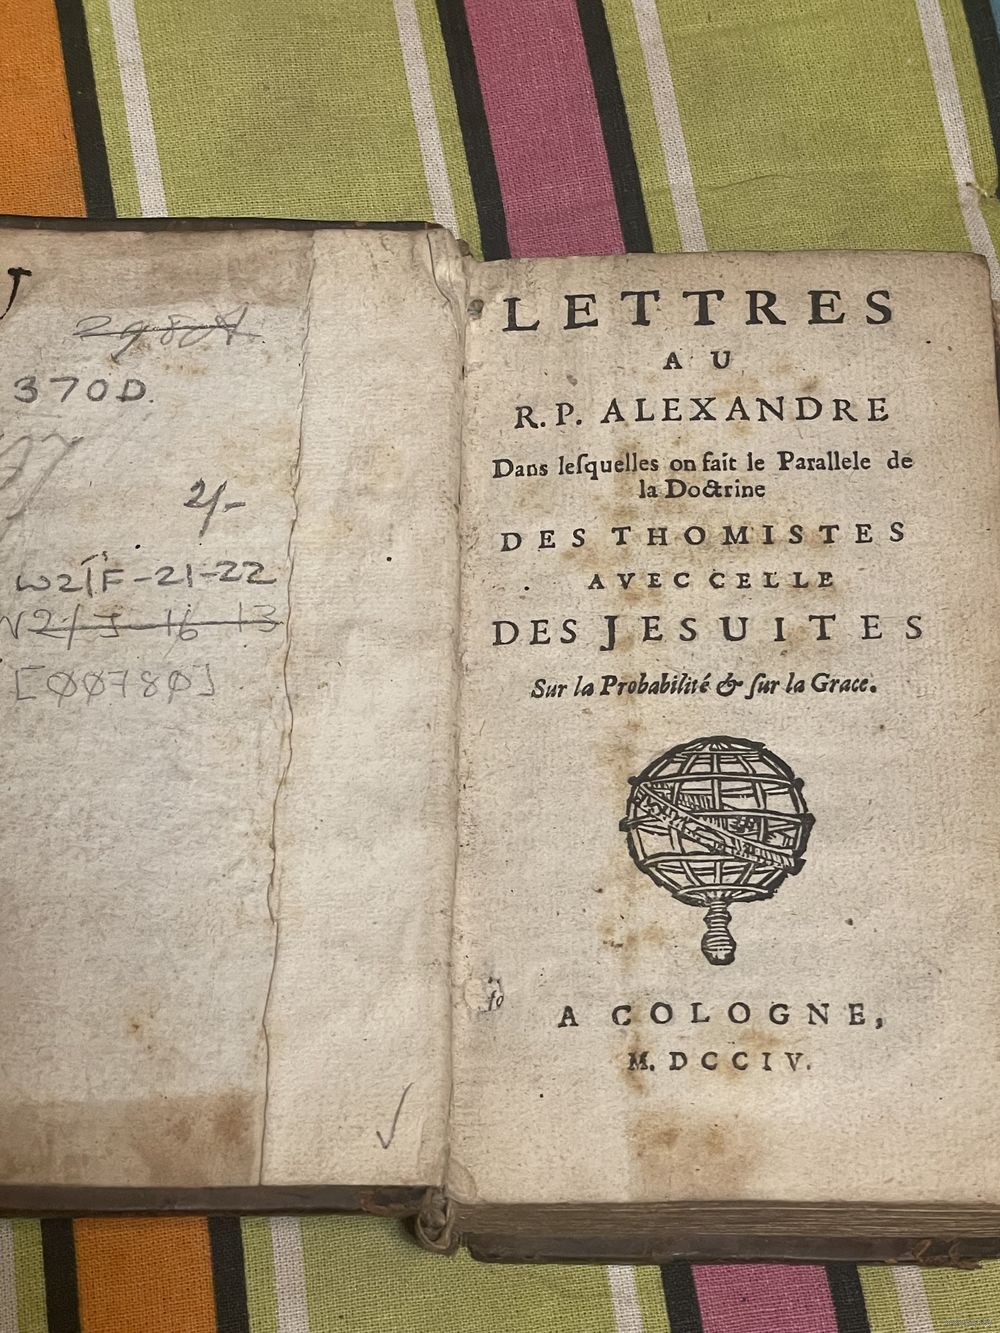 J
298A
370D.
2/-
W21F-21-22
[00780]
LETTRES
AU
R. P. ALEXANDRE
Dans leſquelles on fait le Parallele de
la Doctrine
DES THOMISTES
AVEC CELLE
DES JESUITES
Sur la Probabilité & ſur la Grace.
A COLOGNE,
M. DCCIV.